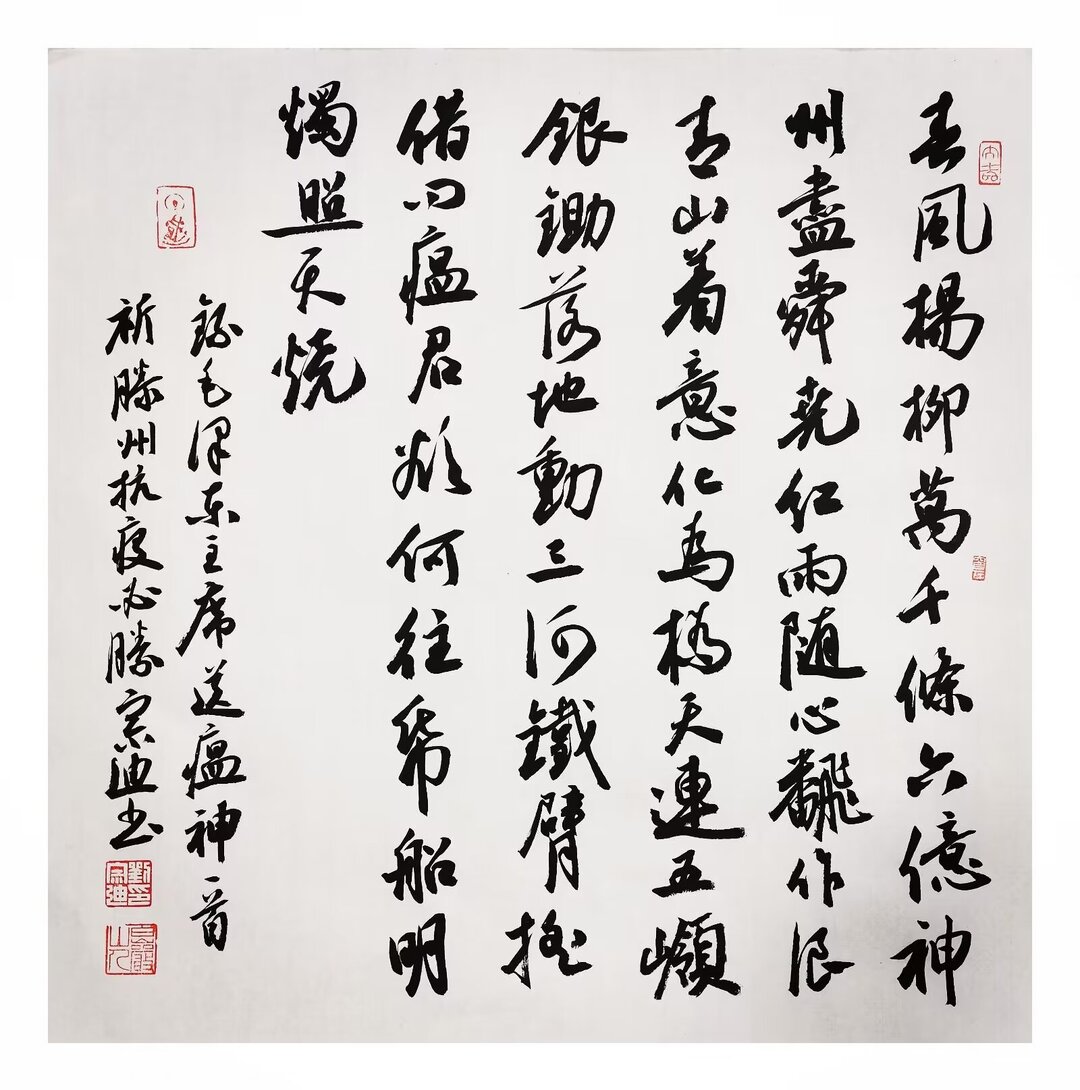 春風楊柳萬千條六億神
州盡舜堯红雨随心飜作浪
青山着意化為橋天連五嶺
銀鋤落地動三河鐵臂搖
借问瘟君欲何往帋船明
燭照天燒
錄毛澤东主席送瘟神一首
祈滕州抗疫必勝宗迪书
劉印宗迪